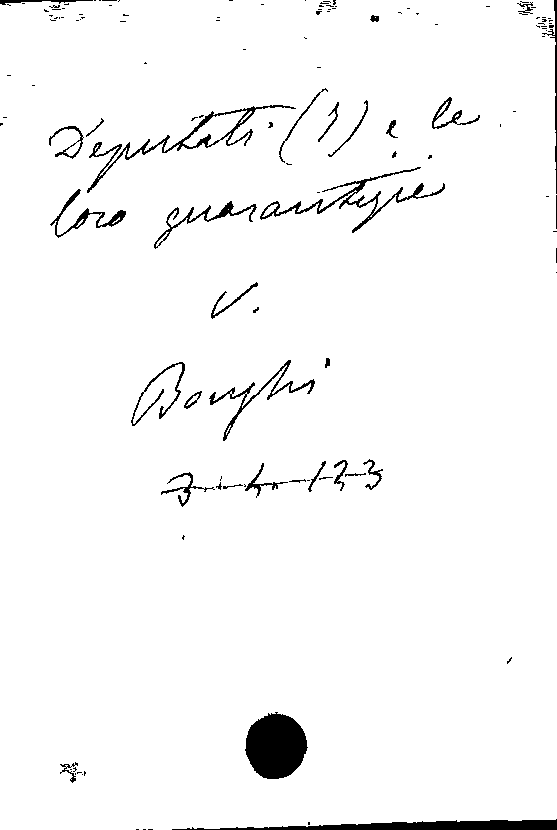 Deputati (I) e le
loro guarantigie
V.
Bonghi
3. L. 123